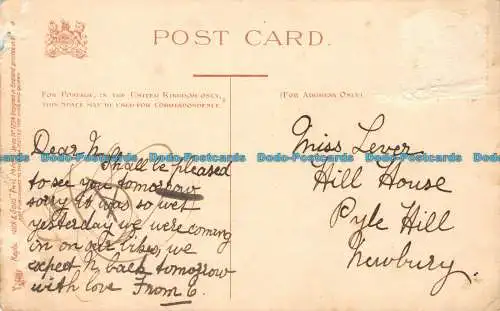 POST CARD.
FOR POSTAGE, IN THE UNITED KINGDOM ONLY,
THIS SPACE MAY BE USED FOR CORRESPONDENCE.
(FOR ADDRESS ONLY.)
Dear N. Shall be pleased
to see you tomorrow
sorry it was so wet
yesterday we were coming
in on our bikes, we
expect N back tomorrow
with love From G.
Miss Lever
Hill House
Pyle Hill
Newbury.
Dodo-Postcards Dodo-Postcards Dodo-Postcards Dodo-Postcards